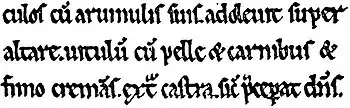 culos cū arumulis suis. adoleuit super
altare. uitulū cū pelle & carnibus &
fimo cremās. ext̄ castra. sic̄ p̄ceperat dn̄s.